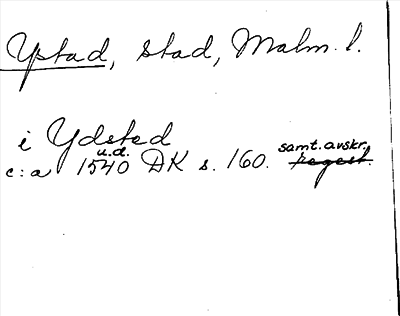 Ystad, stad, Malm. l.
i Ydsted
u.d. samt. avskr.
c:a 1540 DK s. 160. regest.